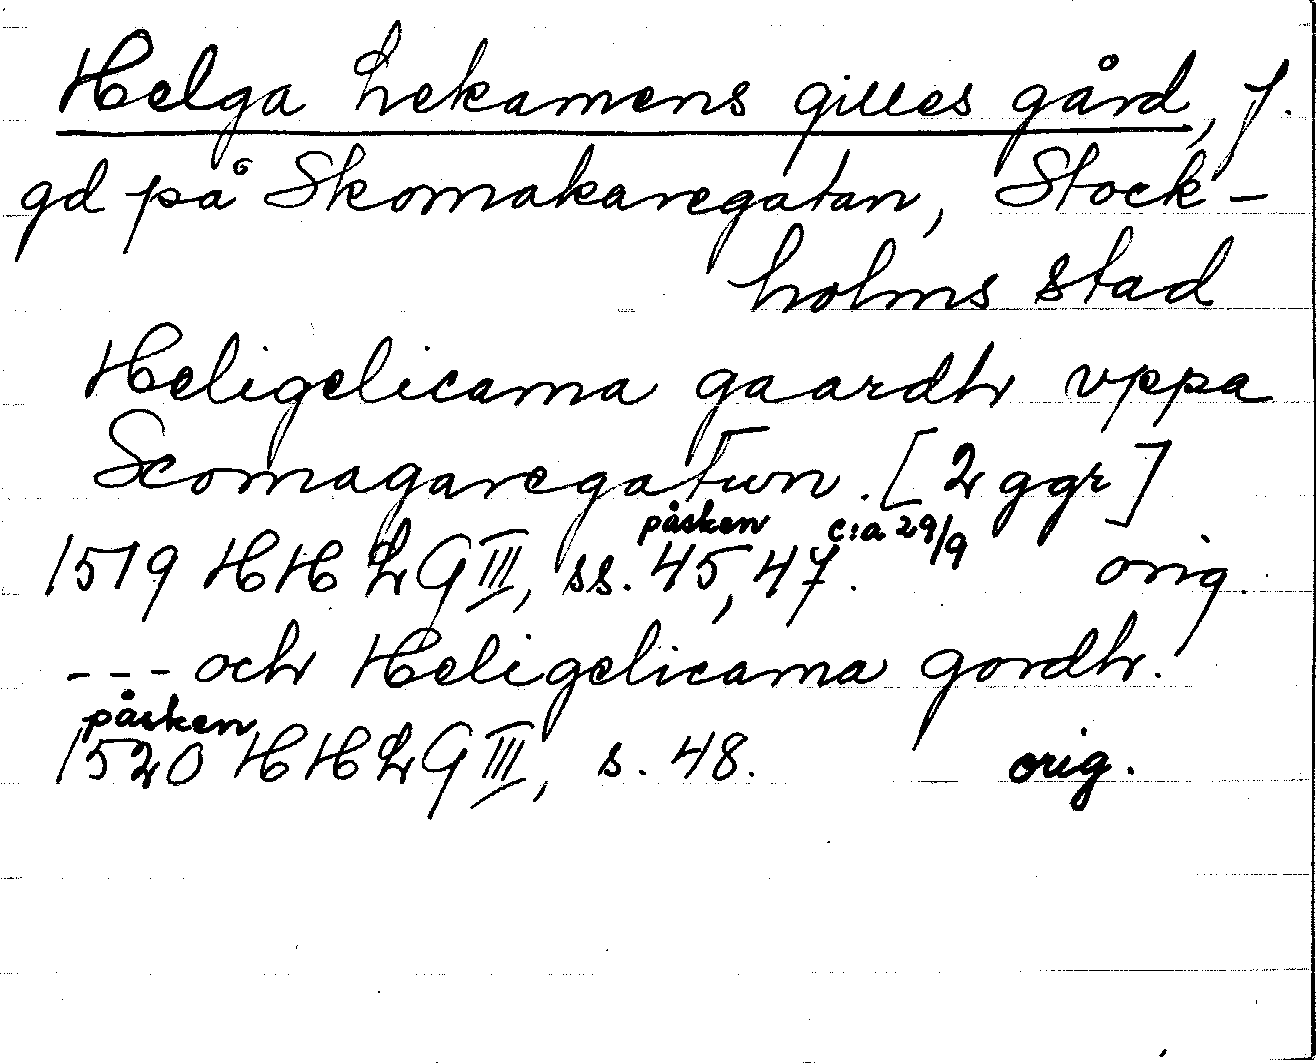 Helga Lekamens gilles gård, f.
gd på Skomakaregatan, Stock-
holms stad
Heligelicama gaardh vppa
Scomagaregatwn. [2 ggr]
påsken c:a 29/9
1519 HHLG III, ss. 45, 47. orig.
--- och Heligelicama gordh.
påsken
1520 HHLG III, s. 48. orig.